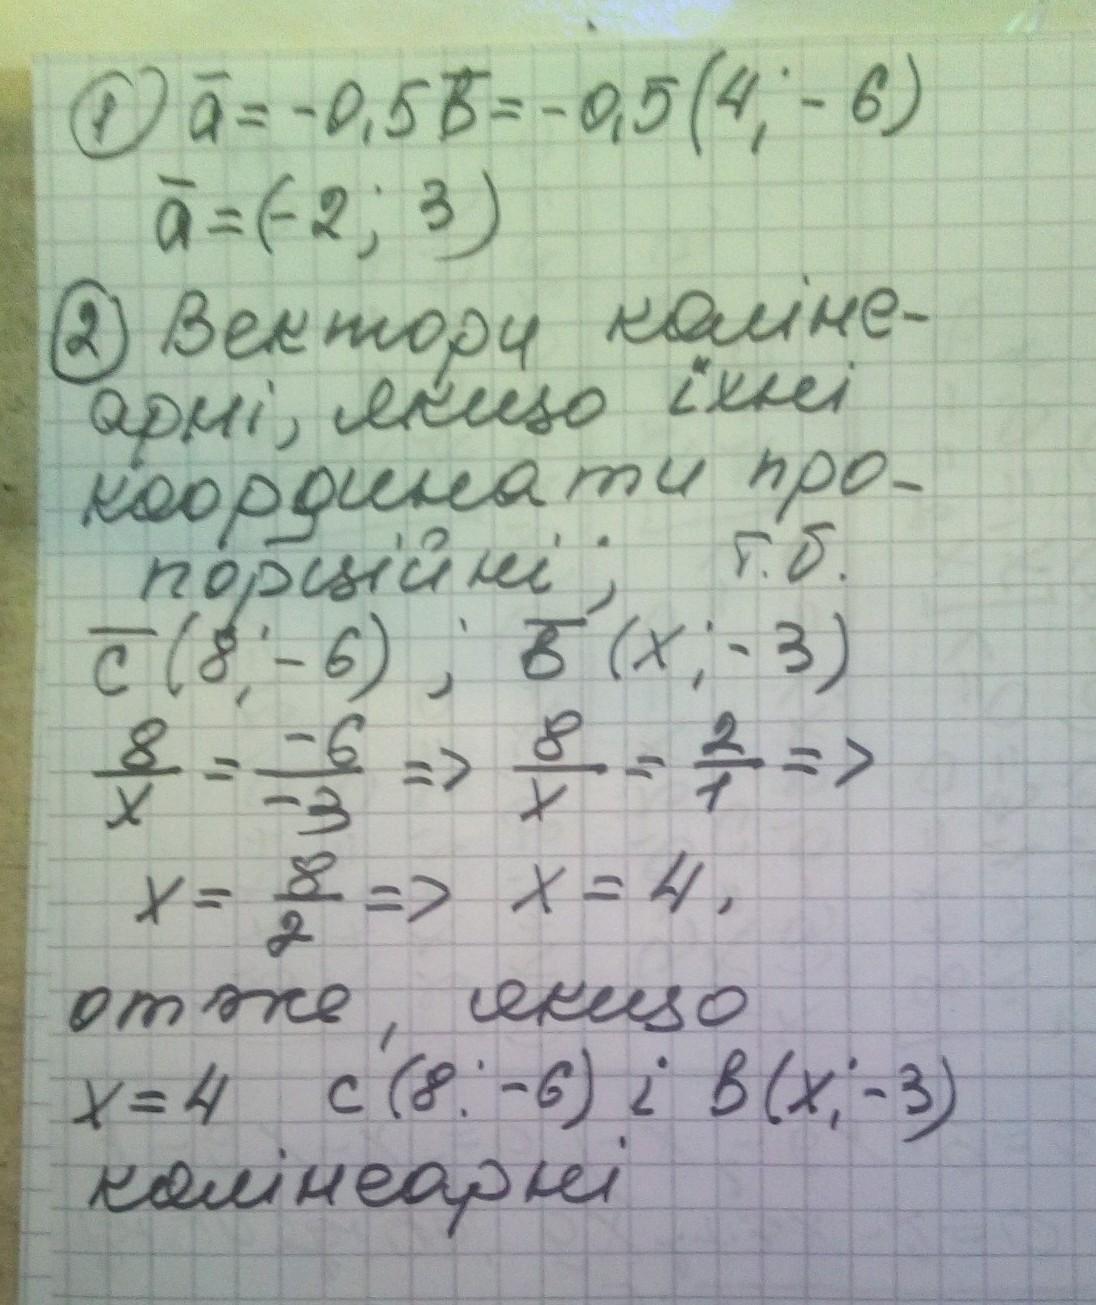 ① a̅ = -0,5 b̅ = -0,5 (4; -6)
a̅ = (-2; 3)
② Вектори коліне-
арні, якщо їхні
координати про-
порційні; т.б.
c̅ (8; -6) ; b̅ (x; -3)
8/x = -6/-3 => 8/x = 2/1 =>
x = 8/2 => x = 4,
отже, якщо
x = 4 c (8; -6) і b (x; -3)
колінеарні